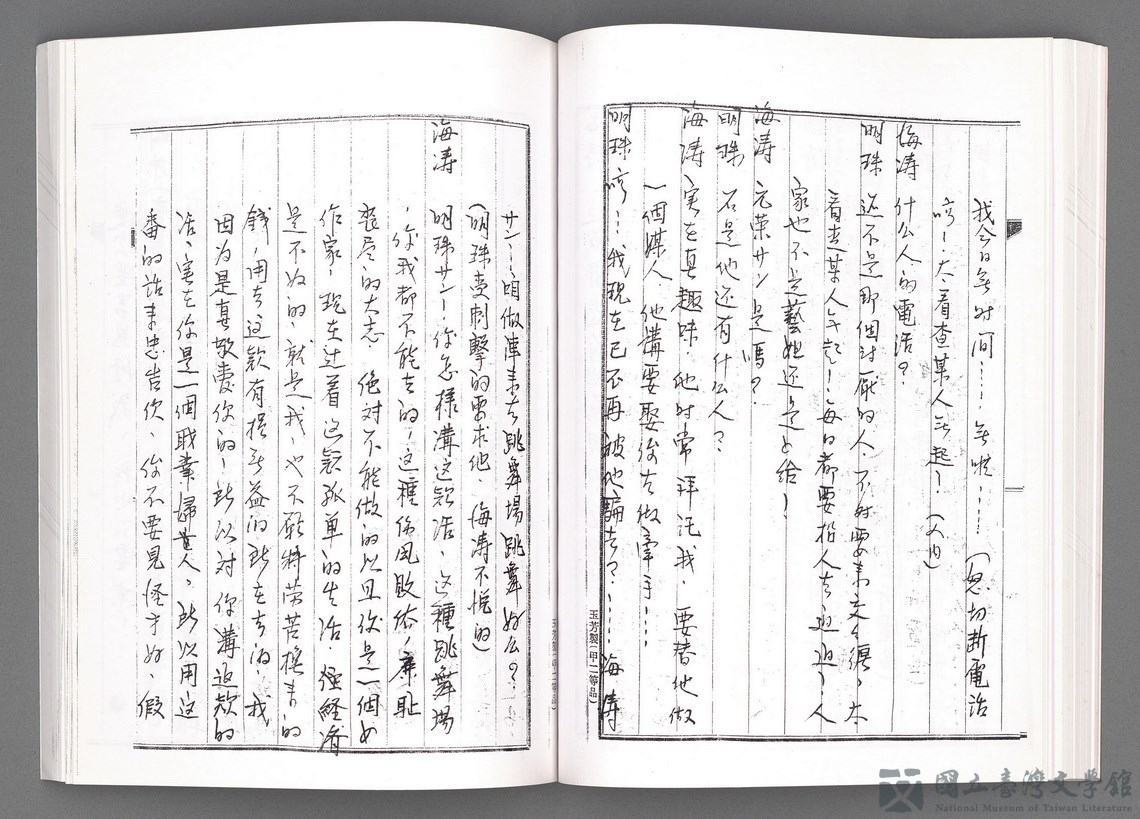 我今日無时间……無啦……(怒切断電話
哼!大看查某人無起!(入内)
海涛 什么人的電話?
明珠 还不是那個討厭的人、不时要來交纏、大
看查某人無起!每日都要招人去迫迫!人
家也不是藝妲还是女給!
海涛 元荣サン是嗎?
明珠 不是他还有什么人?
海涛 实在真趣味、他时常拜託我、要替他做
一個媒人、他講要娶後去做牽手……
明珠 哼……我現在已不再被他騙去?……海涛
サン!咱做陣來去跳舞場跳舞好么?
(明珠受刺擊的要求他、海涛不悦的)
海涛 明珠サン!你怎樣講这欵话、这種跳舞場
、你我都不能去的!这種伤風敗俗、廉耻
喪尽的大志、绝对不能做的以且你是一個女
作家、现在过着这欵孤单的生活、经済
是不如的、就是我、也不願将劳苦換來的
錢、用去这欵有損無益的所在去的、我
因为是真敬愛你的!所以对你講这欵的
话、实在你是一個职業婦道人、所以用这
番的話來忠告你、你不要見怪才好、假
玉芳製(甲二等品)
玉芳製(甲二等品)
國立臺灣文學館
National Museum of Taiwan Literature